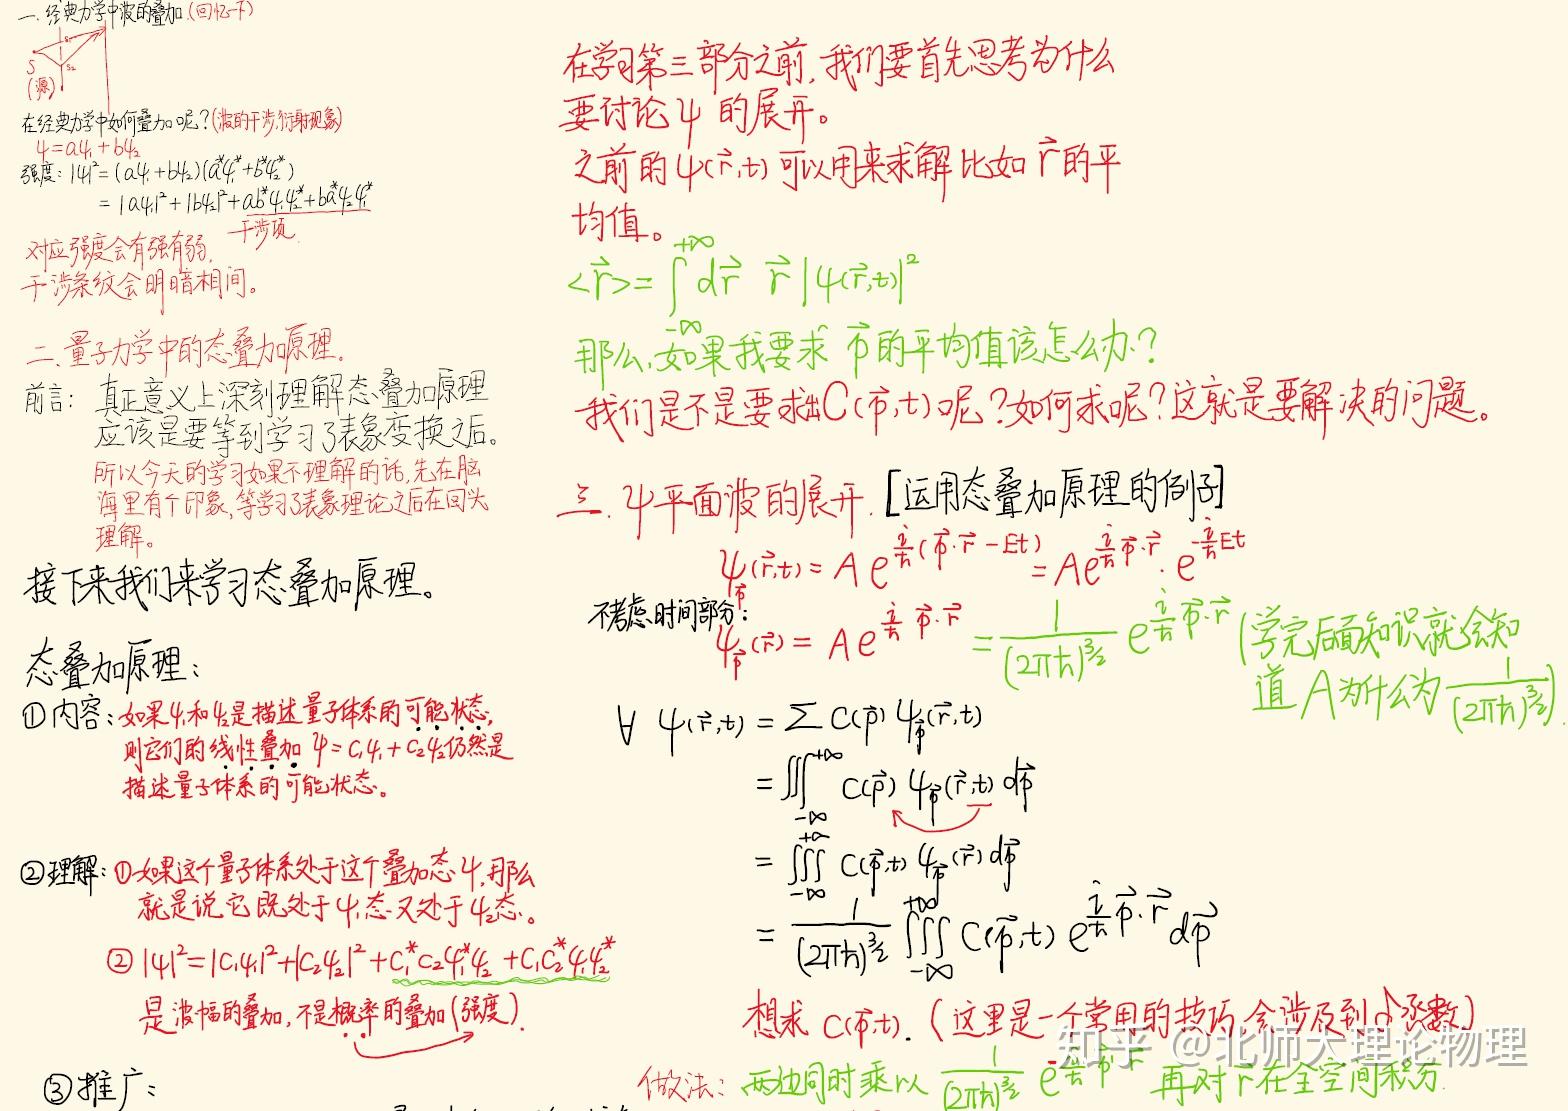 一. 经典力学中波的叠加(回忆一下)
S
(源)
S₁
S₂
在经典力学中如何叠加呢?(波的干涉,衍射现象)
ψ=aψ₁+bψ₂
强度: |ψ|²=(aψ₁+bψ₂)(a*ψ₁*+b*ψ₂*)
=|aψ₁|²+|bψ₂|²+ab*ψ₁ψ₂*+ba*ψ₂ψ₁*
干涉项.
对应强度会有强有弱,
干涉条纹会明暗相间。
二.量子力学中的态叠加原理.
前言: 真正意义上深刻理解态叠加原理
应该是要等到学习了表象变换之后。
所以今天的学习如果不理解的话,先在脑
海里有个印象,等学习了表象理论之后在回头
理解。
接下来我们来学习态叠加原理。
态叠加原理:
①内容:如果ψ₁和ψ₂是描述量子体系的可能状态,
则它们的线性叠加 ψ=c₁ψ₁+c₂ψ₂仍然是
描述量子体系的可能状态。
②理解:①如果这个量子体系处于这个叠加态ψ,那么
就是说它既处于ψ₁态又处于ψ₂态。
②|ψ|²=|C₁ψ₁|²+|C₂ψ₂|²+C₁*C₂ψ₁*ψ₂+C₁C₂*ψ₁ψ₂*
是波幅的叠加,不是概率的叠加(强度).
③推广:
在学习第三部分之前,我们要首先思考为什么
要讨论ψ的展开。
之前的ψ(r⃗,t)可以用来求解比如r⃗的平
均值。
<r⃗>=∫₋∞⁺∞ dr⃗ r⃗|ψ(r⃗,t)|²
那么,如果我要求 p⃗的平均值该怎么办?
我们是不是要求出C(p⃗,t)呢?如何求呢?这就是要解决的问题。
三. ψ平面波的展开.[运用态叠加原理的例子]
ψ_p⃗(r⃗,t)=Ae^{i/ħ(p⃗·r⃗-Et)}=Ae^{i/ħ p⃗·r⃗}·e^{-i/ħ Et}
不考虑时间部分:
ψ_p⃗(r⃗)=Ae^{i/ħ p⃗·r⃗}=1/(2πħ)^{3/2} e^{i/ħ p⃗·r⃗}(学完后面知识就会知
道A为什么为1/(2πħ)^{3/2}).
∀ ψ(r⃗,t)=∑C(p⃗)ψ_p⃗(r⃗,t)
=∭₋∞⁺∞ C(p⃗)ψ_p⃗(r⃗,t)dp⃗
=∭₋∞⁺∞ C(p⃗,t)ψ_p⃗(r⃗)dp⃗
=1/(2πħ)^{3/2}∭₋∞⁺∞ C(p⃗,t)e^{i/ħ p⃗·r⃗}dp⃗
想求C(p⃗,t).(这里是一个常用的技巧,会涉及到δ函数)
做法: 两边同时乘以 1/(2πħ)^{3/2} e^{-i/ħ p⃗'·r⃗} 再对r⃗在全空间积分.
知乎 @北师大理论物理